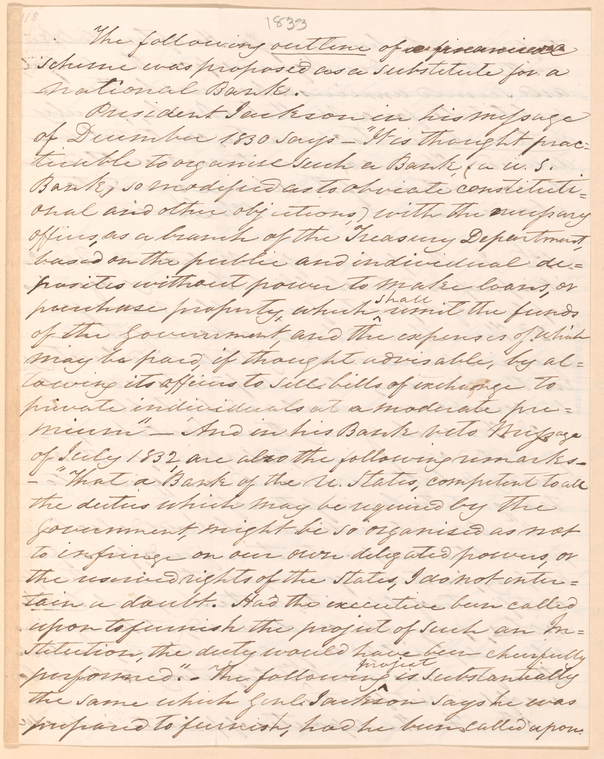 1833
The following outline of a financial
scheme was proposed as a substitute for a
National Bank.
President Jackson in his message
of December 1830 says – "It is thought prac=
ticable to organise such a Bank, (a U. S.
Bank, so modified as to obviate constituti=
onal and other objections,) with the necessary
officers, as a branch of the Treasury Department,
based on the public and individual de=
posites without power to make loans, or
purchase property, which shall remit the funds
of the Government, and the expenses of which
may be paid, if thought advisable, by al=
lowing its officers to sell bills of exchange to
private individuals at a moderate pre=
mium" – And in his Bank veto Message
of July 1832, are also the following remarks –
– "That a Bank of the U. States, competent to all
the duties which may be required by the
government, might be so organised as not
to infringe on our own delegated powers, or
the reserved rights of the States, I do not enter=
tain a doubt. Had the executive been called
upon to furnish the project of such an In=
stitution, the duty would have been cheerfully
performed." – The following project is substantially
the same which Genl. Jackson says he was
prepared to furnish, had he been called upon.